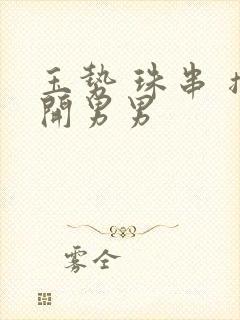 玉势 珠串 扌
開男男
雾仝